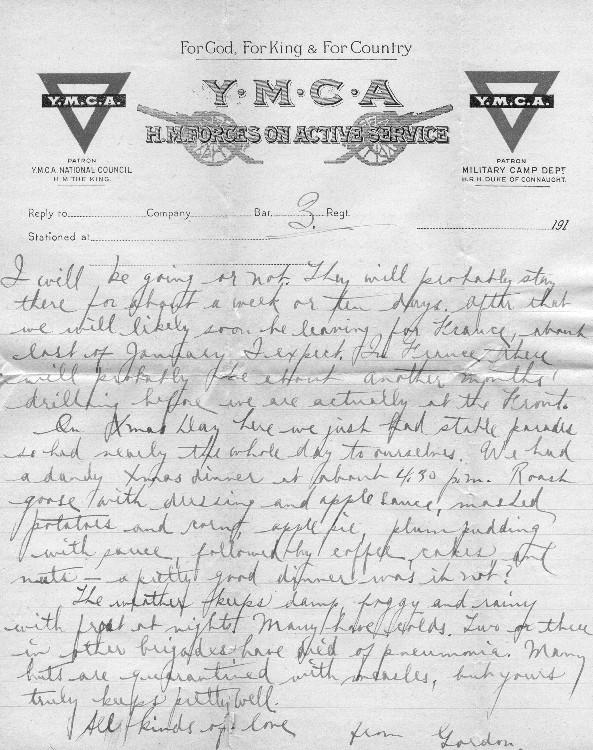 For God, For King & For Country
Y·M·C·A
H.M. FORCES ON ACTIVE SERVICE
Y.M.C.A.
PATRON
Y.M.C.A. NATIONAL COUNCIL
H.M. THE KING.
Y.M.C.A.
PATRON
MILITARY CAMP DEPT
H.R.H. DUKE OF CONNAUGHT.
Reply to Company Bat. 3. Regt.
Stationed at 191
I will be going or not. They will probably stay
there for about a week or ten days. After that
we will likely soon be leaving for France, about
last of January I expect. In France there
will probably be about another months'
drilling before we are actually at the Front.
On Xmas Day here we just had stable parades
so had nearly the whole day to ourselves. We had
a dandy Xmas dinner at about 4.30 p.m. Roast
goose with dressing and apple sauce, mashed
potatoes and corn, apple pie, plum pudding
with sauce, followed by coffee, cakes, and
nuts – a pretty good dinner was it not?
The weather keeps damp, foggy and rainy
with frost at nights. Many have colds. Two or three
in other brigades have died of pneumonia. Many
huts are quarantined with measles, but yours
truly keeps pretty well.
All kinds of love
from Gordon.